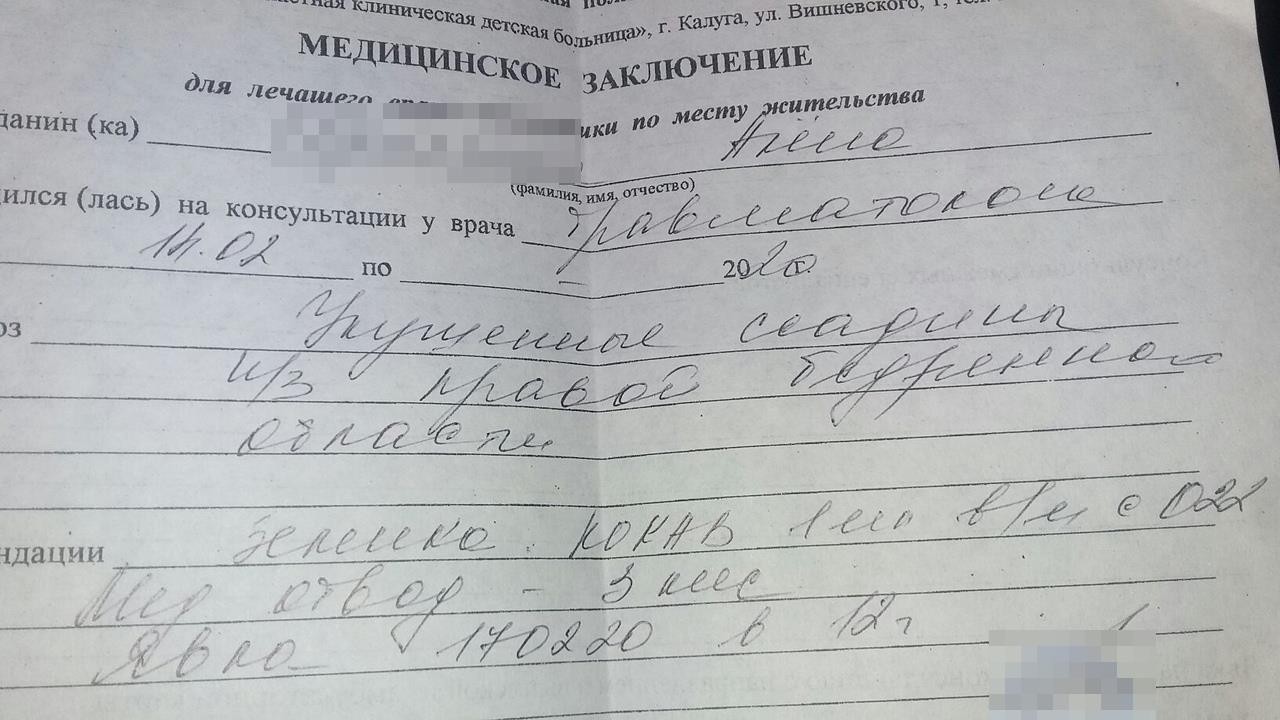 клиническая детская больница», г. Калуга, ул. Вишневского, 1, тел.
МЕДИЦИНСКОЕ ЗАКЛЮЧЕНИЕ
для лечащего по месту жительства
данин (ка)
(фамилия, имя, отчество)
ился (лась) на консультации у врача травматолога
14.02 по – 2020 г.
оз Укушенные ссадины
н/з правой бедренной
области
ндации Зеленка. КОКАВ 1 мл в/м с 022
Мед отвод - 3 мес
Явка 170220 в 12 г